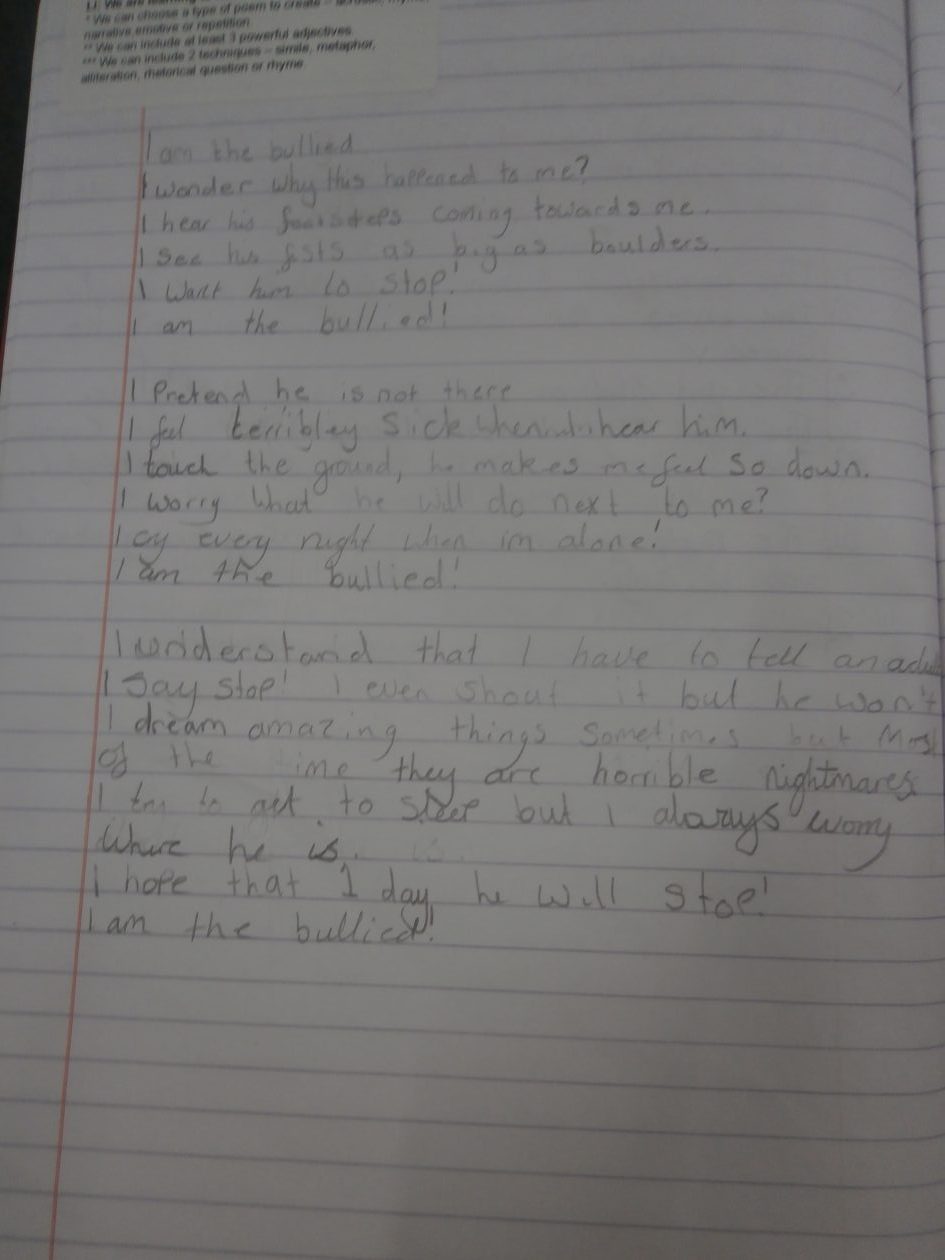 LI: We are learning
* We can choose a type of poem to create – acrostic, rhyme,
narrative, emotive or repetition
** We can include at least 3 powerful adjectives
*** We can include 2 techniques – simile, metaphor,
alliteration, rhetorical question or rhyme.
I am the bullied
I wonder why this happened to me?
I hear his footsteps coming towards me.
I see his fists as big as boulders.
I Want him to stop!
I am the bullied!
I Pretend he is not there
I feel terribley Sick when I hear him.
I touch the ground, he makes me feel So down.
I Worry What he will do next to me?
I cy every night when im alone!
I am the bullied!
I understand that I have to tell an adu
I Say stop! I even shout it but he won't
I dream amazing things Sometimes but Most
of the ime they are horrible nightmares
I try to get to sleep but I always worry
Where he is.
I hope that 1 day he will stop!
I am the bullied!